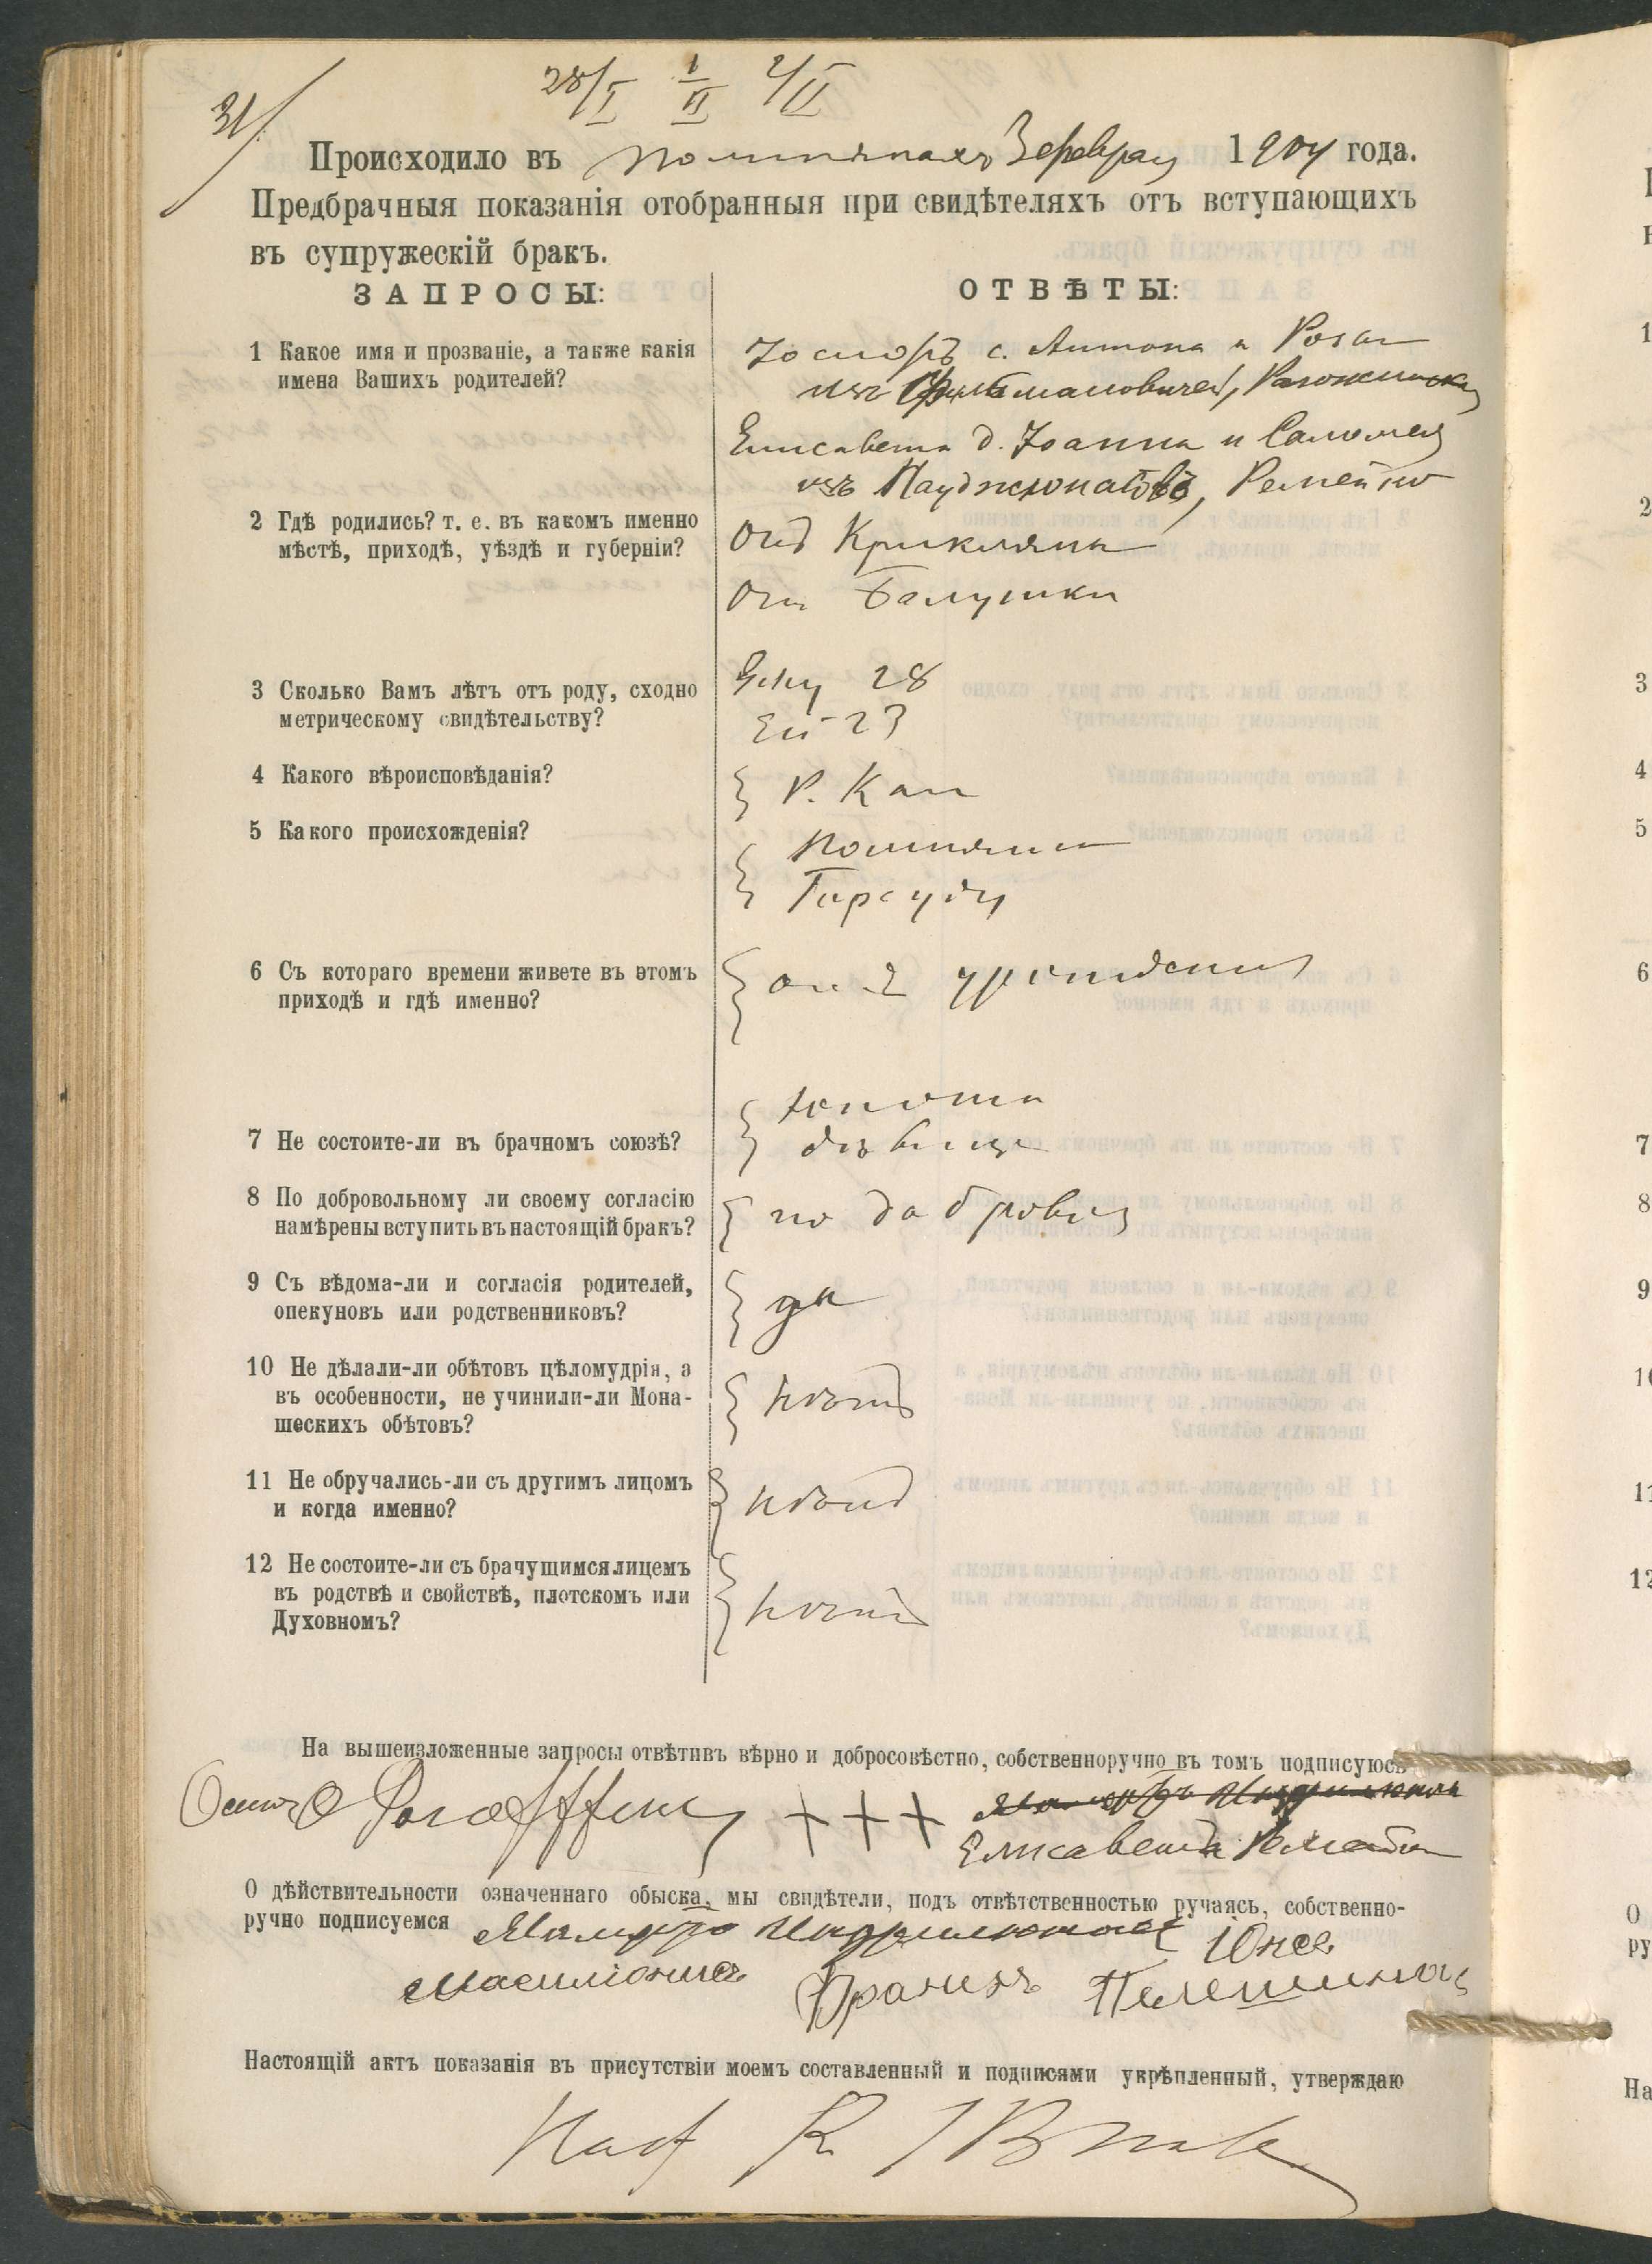 31/
28/I 1/II 2/II
Происходило въ 3 Февраля 1904 года.
Предбрачныя показанія отобранныя при свидѣтеляхъ отъ вступающихъ
въ супружескій бракъ.
ЗАПРОСЫ: ОТВѢТЫ:
1 Какое имя и прозваніе, а также какія
имена Вашихъ родителей?
Іосифъ с. Антона и Розаліи
изъ
Елисавета д. Іоанна и Саломеи
изъ
2 Гдѣ родились? т. е. въ какомъ именно
мѣстѣ, приходѣ, уѣздѣ и губерніи?
Онъ Крикляны
Она Балушки
3 Сколько Вамъ лѣтъ отъ роду, сходно
метрическому свидѣтельству?
Ему 28
Ей 23
4 Какого вѣроисповѣданія?
Р. Кат
5 Какого происхожденія?
6 Съ котораго времени живете въ этомъ
приходѣ и гдѣ именно?
отъ рожденія
7 Не состоите-ли въ брачномъ союзѣ?
юноша
дѣвица
8 По добровольному ли своему согласію
намѣрены вступить въ настоящій бракъ?
по добров
9 Съ вѣдома-ли и согласія родителей,
опекуновъ или родственниковъ?
да
10 Не дѣлали-ли обѣтовъ цѣломудрія, а
въ особенности, не учинили-ли Мона-
шескихъ обѣтовъ?
нѣтъ
11 Не обручались-ли съ другимъ лицомъ
и когда именно?
нѣтъ
12 Не состоите-ли съ брачущимся лицемъ
въ родствѣ и свойствѣ, плотскомъ или
Духовномъ?
нѣтъ
На вышеизложенные запросы отвѣтивъ вѣрно и добросовѣстно, собственноручно въ томъ подписуюсь
+ + +
Елисавета
О дѣйствительности означеннаго обыска, мы свидѣтели, подъ отвѣтственностью ручаясь, собственно-
ручно подписуемся
Францъ
Настоящій актъ показанія въ присутствіи моемъ составленный и подписями укрѣпленный, утверждаю